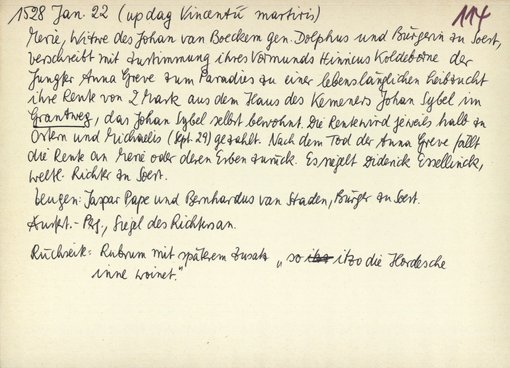 1528 Jan. 22 (up dag Vincentii martiris) 114
Merie, Witwe des Johan van Boeckem gen. Dolphus und Bürgerin zu Soest,
verschreibt mit Zustimmung ihres Vormunds Hinricus Koldeborne der
Jungfer Anna Greve zum Paradies zu einer lebenslänglichen Leibzucht
ihre Rente von 2 Mark aus dem Haus des Kemeners Johan Sybel im
Grantweg, das Johan Sybel selbst bewohnt. Die Rente wird jeweils halb zu
Ostern und Michaelis (Sept. 29) gezahlt. Nach dem Tod der Anna Greve fällt
die Rente an Merie oder deren Erben zurück. Es siegelt Diderick Essellinck,
weltl. Richter zu Soest.
Zeugen: Jaspar Pape und Bernhardus van Staden, Bürger zu Soest.
Ausf. - Pg., Siegel des Richters an.
Rückseite: Rubrum mit späterem Zusatz „so itzo die Hordesche
inne woinet."